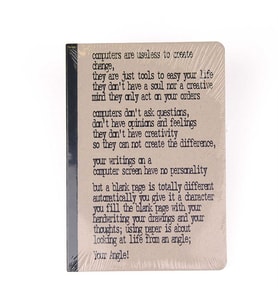 computers are useless to create
change,
they are just tools to easy your life
they don't have a soul nor a creative
mind they only act on your orders
computers don't ask questions,
don't have opinions and feelings
they don't have creativity
so they can not create the difference,
your writings on a
computer screen have no personality
but a blank page is totally different
automatically you give it a character
you fill the blank page with your
handwriting your drawings and your
thoughts; using paper is about
looking at life from an angle;
Your Angle!